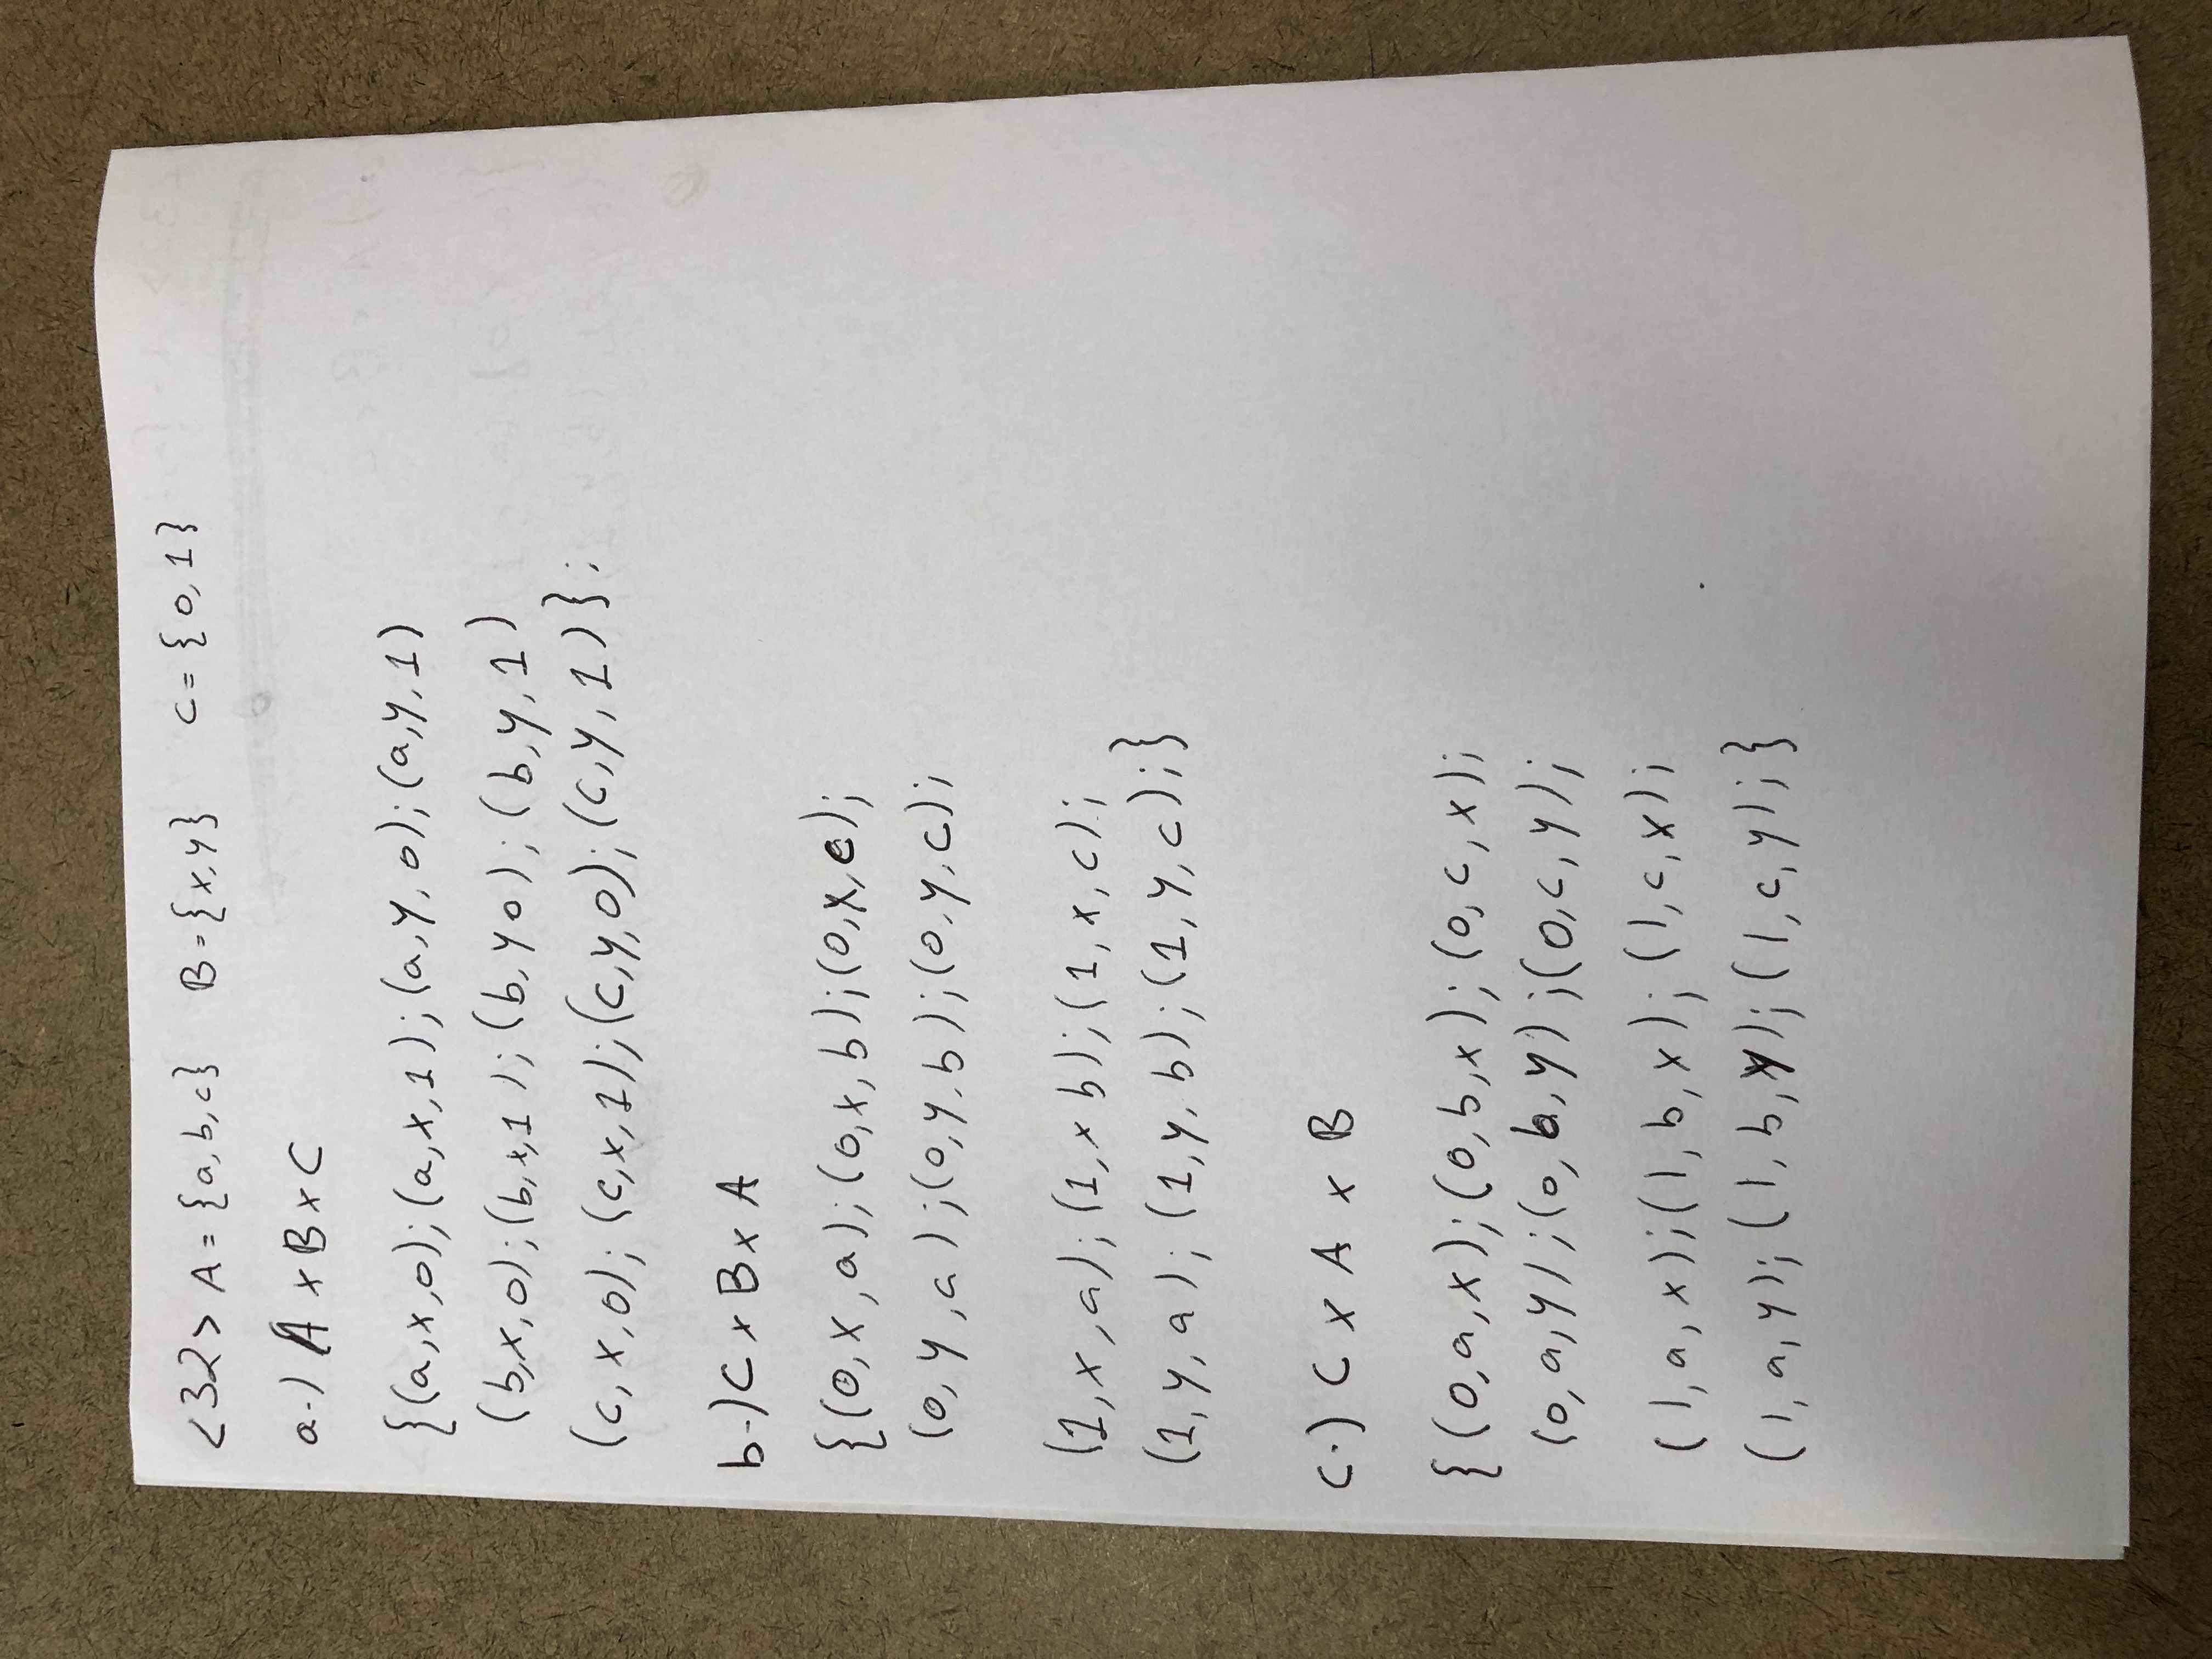 <32> A = {a, b, c} B = {x, y} C = { 0, 1 }
a.) A x B x C
{(a, x, 0); (a, x, 1); (a, y, 0); (a, y, 1)
(b, x, 0); (b, x, 1); (b, y 0); (b, y, 1)
(c, x, 0); (c, x, 1); (c, y, 0); (c, y, 1)};
b.) C x B x A
{(0, x, a); (0, x, b); (0, x, c);
(0, y, a); (0, y, b); (0, y, c);
(1, x, a); (1, x b); (1, x, c);
(1, y, a); (1, y, b); (1, y, c);}
c.) C x A x B
{(0, a, x); (0, b, x); (0, c, x);
(0, a, y); (0, b, y); (0, c, y);
(1, a, x); (1, b, x); (1, c, x);
(1, a, y); (1, b, y); (1, c, y);}